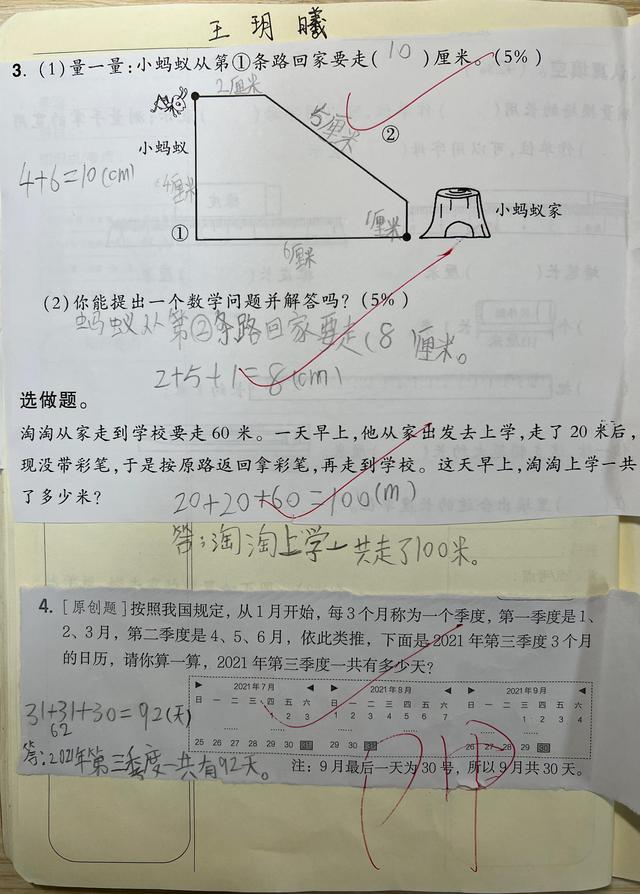 王玥曦
3. (1) 量一量:小蚂蚁从第①条路回家要走( 10 )厘米。(5%)
2厘米
5厘米
②
小蚂蚁
4+6=10(cm)
4厘米
小蚂蚁家
①
1厘米
6厘米
(2) 你能提出一个数学问题并解答吗? (5%)
蚂蚁从第②条路回家要走(8 厘米。
2+5+1=8(cm)
选做题。
淘淘从家走到学校要走 60 米。一天早上,他从家出发去上学,走了 20 米后,
现没带彩笔,于是按原路返回拿彩笔,再走到学校。这天早上,淘淘上学一共
了多少米?
20+20+60=100(m)
答:淘淘上学一共走了100米。
4. [原创题]按照我国规定,从1月开始,每3个月称为一个季度,第一季度是1、
2、3月,第二季度是4、5、6月,依此类推,下面是2021年第三季度3个月
的日历,请你算一算,2021年第三季度一共有多少天?
2021年7月 2021年8月 2021年9月
日 一 二 三 四 五 六 日 一 二 三 四 五 六 日 一 二 三 四 五 六
1 2 3 1 2 3 4 5 6 7 1 2 3 4
…… …… ……
25 26 27 28 29 30 31 29 30 31 26 27 28 29 30
31+31+30=92(天)
62
答:2021年第三季度一共有92天。
注:9月最后一天为30号,所以9月共30天。